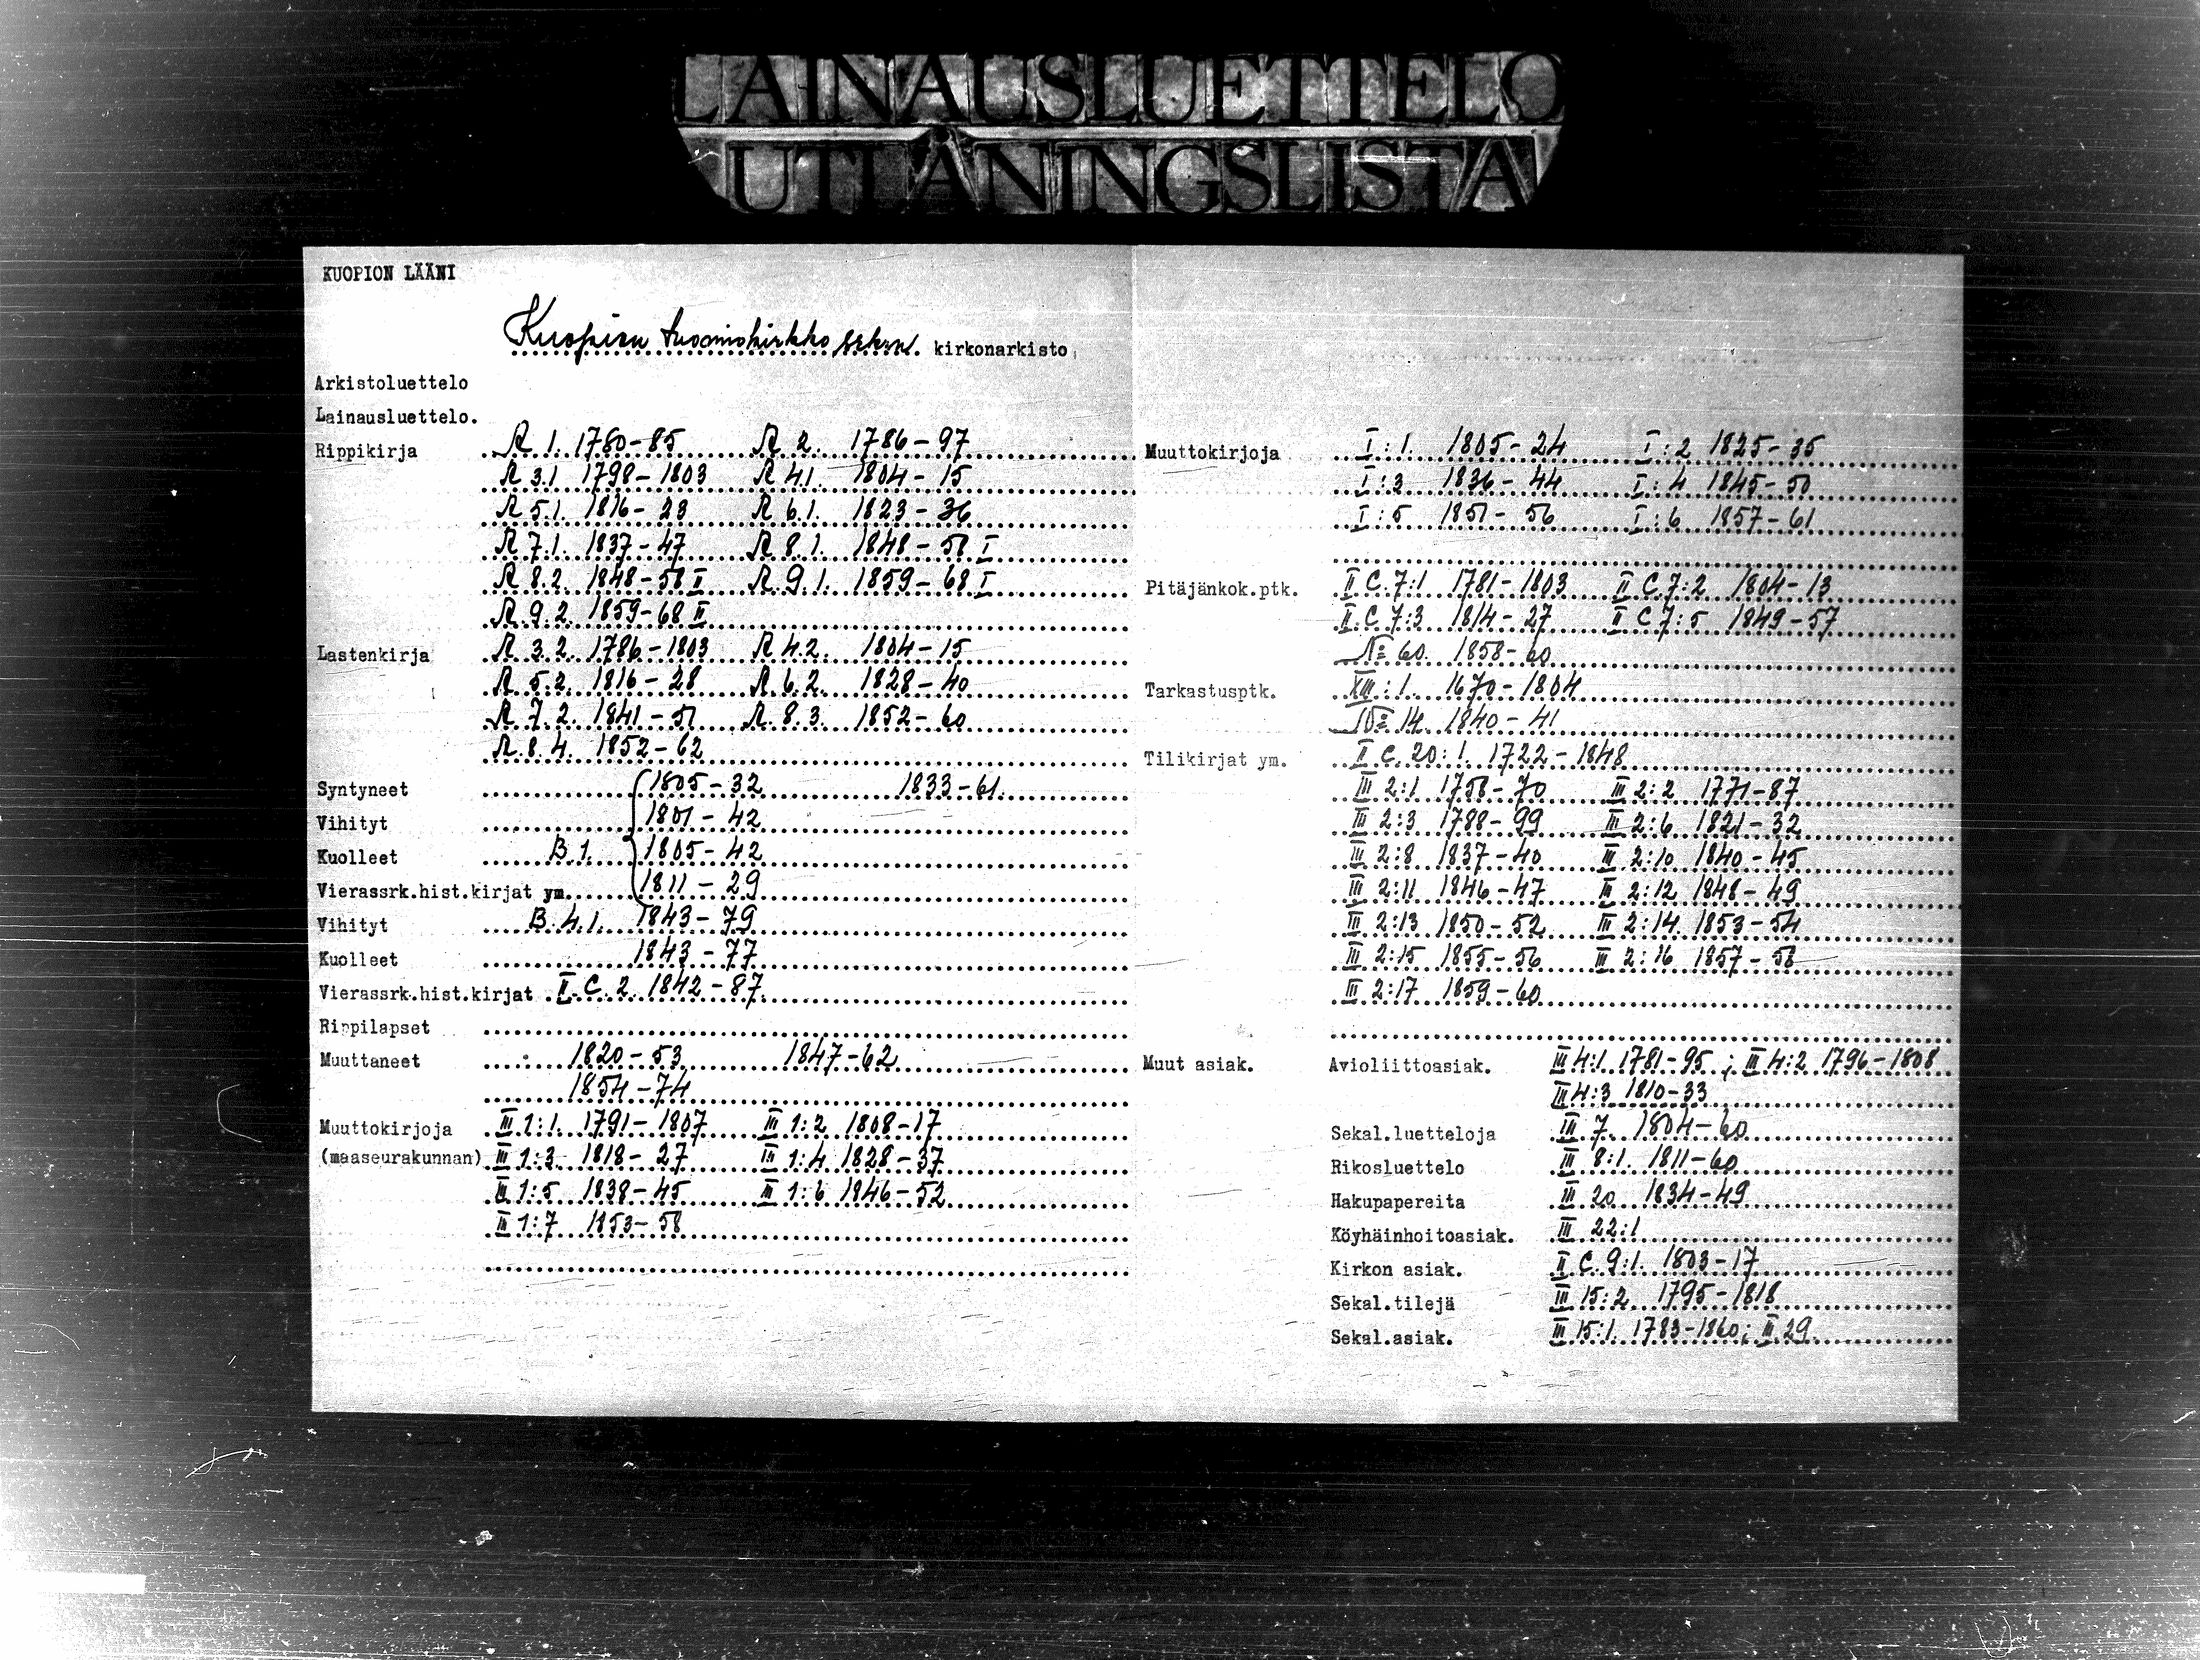 LAINAUSLUETTELO
UTLÅNINGSLISTA
KUOPION LÄÄNI
Kuopion tuomiokirkko srk:n. kirkonarkisto
Arkistoluettelo
Lainausluettelo.
Rippikirja A 1. 1780-85 A 2. 1786-97
A 3.1 1798-1803 A 4.1. 1804-15
A 5.1. 1816-23 A 6.1. 1823-36
A 7.1. 1837-47 A 8.1. 1848-58 I
A 8.2. 1848-58 II A 9.1. 1859-68 I
A 9.2. 1859-68 II
Lastenkirja A 3.2. 1786-1803 A 4.2. 1804-15
A 5.2. 1816-28 A 6.2. 1828-40
A 7.2. 1841-51 A 8.3. 1852-60
A 8.4. 1852-62
Syntyneet 1805-32 1833-61
Vihityt 1801-42
Kuolleet B 1. 1805-42
Vierassrk.hist.kirjat ym. 1811-29
Vihityt B. 4.1. 1843-79
Kuolleet 1843-77
Vierassrk.hist.kirjat II C. 2. 1842-87
Rippilapset
Muuttaneet 1820-53 1847-62
1854-74
Muuttokirjoja III 1:1. 1791-1807 III 1:2 1808-17
(maaseurakunnan) III 1:3 1818-27 III 1:4 1828-37
III 1:5 1838-45 III 1:6 1846-52
III 1:7 1853-58
Muuttokirjoja I:1. 1805-24 I:2 1825-35
I:3 1836-44 I:4 1845-50
I:5 1851-56 I:6 1857-61
Pitäjänkok.ptk. II C.7:1 1781-1803 II C.7:2 1804-13
II C 7:3 1814-27 II C 7:5 1849-57
N:o 60. 1858-60
Tarkastusptk. XIII:1. 1670-1804
N:o 14. 1840-41
Tilikirjat ym. II C. 20:1. 1722-1848
III 2:1 1758-70 III 2:2 1771-87
III 2:3 1788-99 III 2:6 1821-32
III 2:8 1837-40 III 2:10 1840-45
III 2:11 1846-47 III 2:12 1848-49
III 2:13 1850-52 III 2:14 1853-54
III 2:15 1855-56 III 2:16 1857-58
III 2:17 1859-60
Muut asiak. Avioliittoasiak. III 4:1 1781-95; III 4:2 1796-1808
III 4:3 1810-33
Sekal.luetteloja III 7. 1804-60
Rikosluettelo III 8:1. 1811-60
Hakupapereita III 20 1834-49
Köyhäinhoitoasiak. III 22:1
Kirkon asiak. II C. 9:1. 1803-17
Sekal.tilejä III 15:2 1795-1818
Sekal.asiak. III 15:1. 1783-1860; II 29